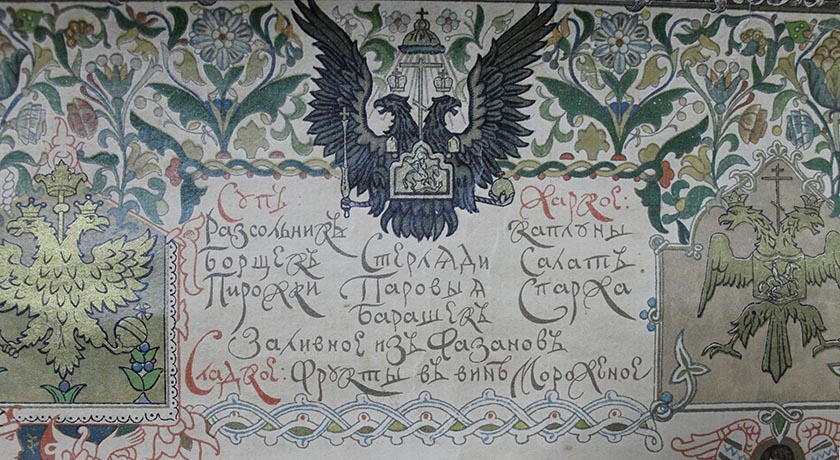 Супъ Жаркое:
Разсольникъ Каплуны
Борщекъ Стерляди Салатъ
Пирожки Паровыя Спаржа
Барашекъ
Заливное изъ Фазановъ
Сладкое: Фрукты въ винѣ Мороженое